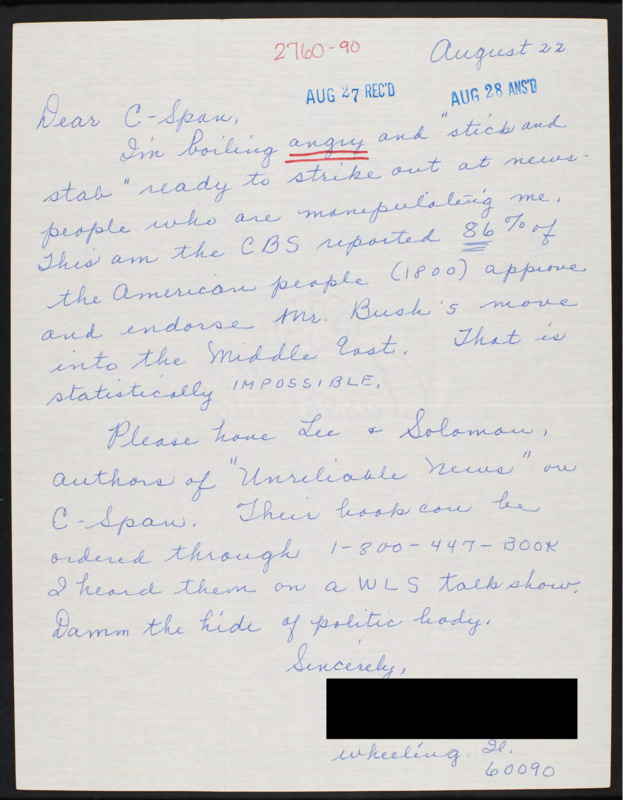 2760-90
August 22
AUG 27 REC'D
AUG 28 ANS'D
Dear C-Span,
I'm boiling angry and "stick and
stab" ready to strike out at news-
people who are manipulateing me.
This am the CBS reported 86% of
the American people (1800) approve
and endorse Mr. Bush's move
into the Middle East. That is
statistically IMPOSSIBLE.
Please have Lee & Soloman,
authors of "Unriliable News" on
C-Span. Their book can be
ordered through 1-800-447-BOOK
I heard them on a WLS talk show.
Damm the hide of politic body.
Sincerely,
Wheeling. Il.
60090